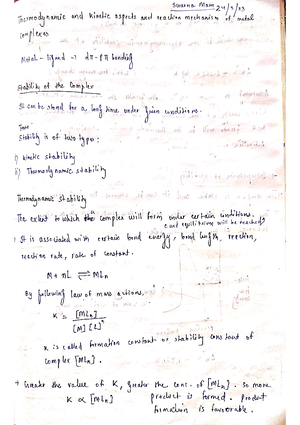 Swarna Mam 24/2/23
Thermodynamic and kinetic aspects and reaction mechanism of metal
complexes
Metal - ligand → dπ-pπ bonding
Stability of the Complex
It can be stored for a long time under given conditions.
Stability is of two types:
i) kinetic stability
ii) Thermodynamic stability
Thermodynamic Stability
The extent to which the complex will form under certain conditions.
(and equilibrium will be reached)
It is associated with certain bond energy, bond length, reaction,
reaction rate, rate of constant.
M + nL ⇌ MLn
By following law of mass actions.
K = [MLn] / [M] [L]^n
K is called formation constant or stability constant of
complex [MLn].
→ Greater the value of K, greater the conc. of [MLn]. So more
K ∝ [MLn] product is formed. Product
formation is favourable.